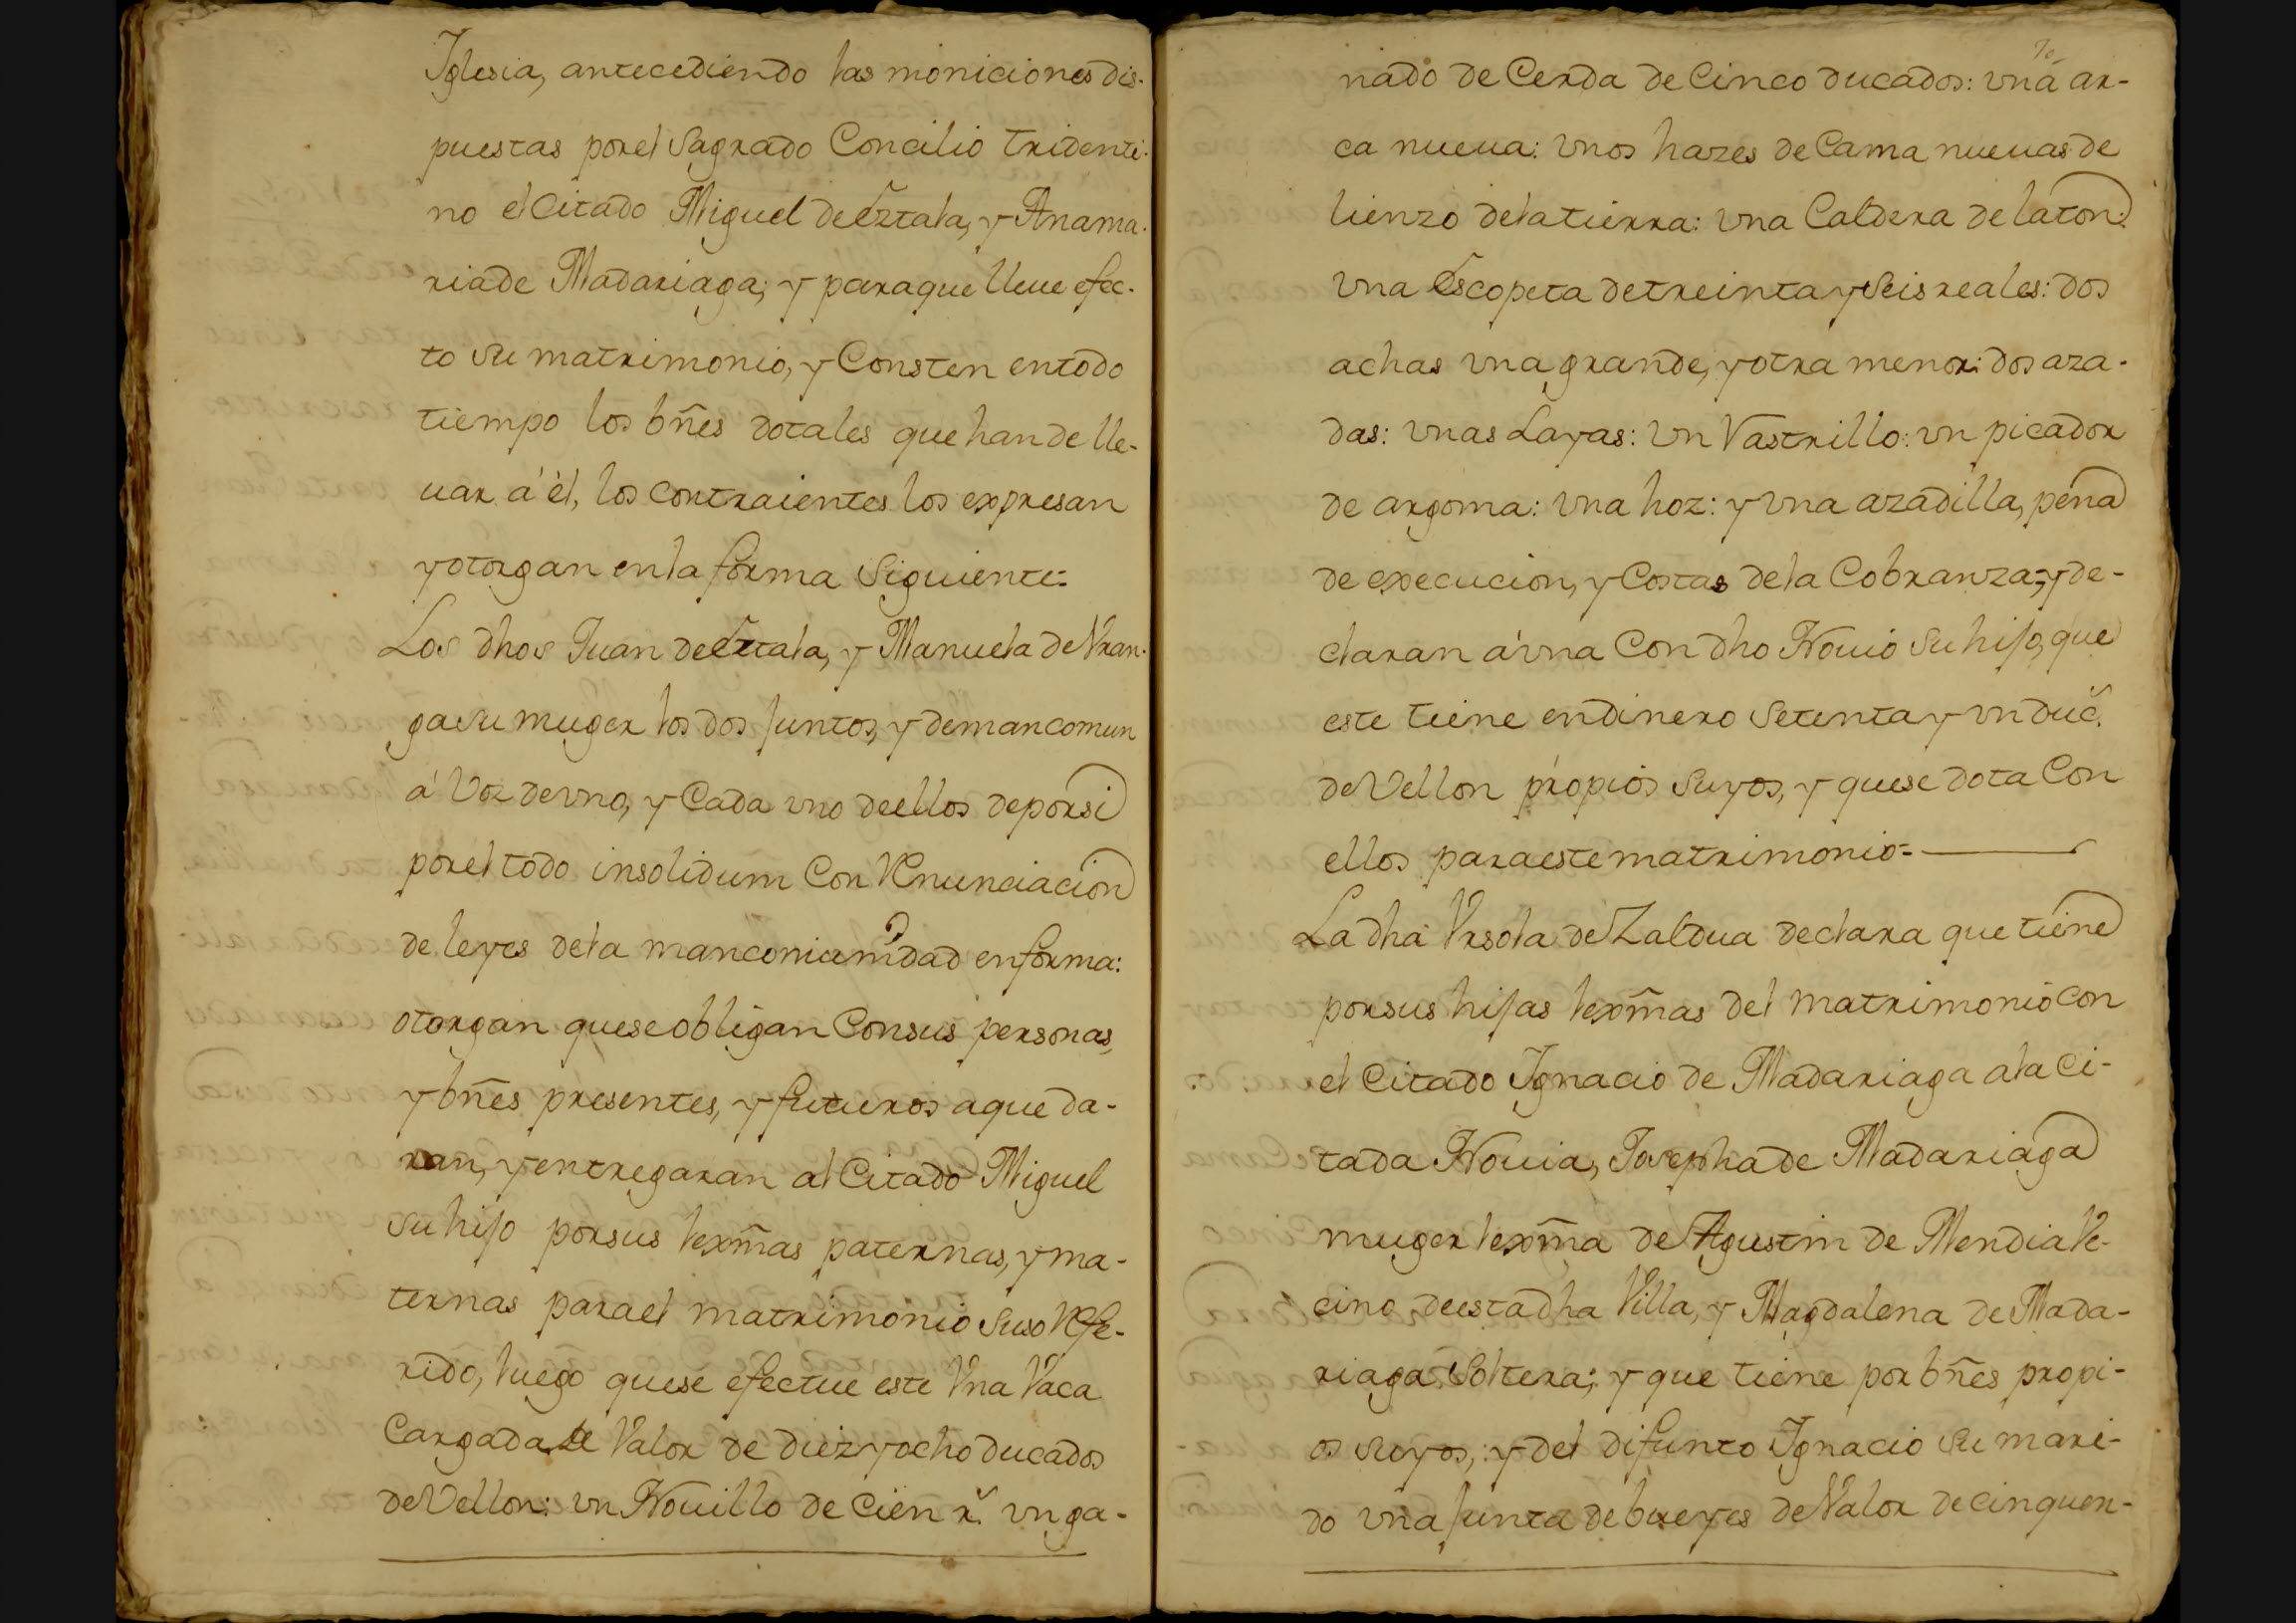 Iglesia, antecediendo las moniciones dis-
puestas por el Sagrado Concilio Tridenti-
no el Citado Miguel de Eztala, y Ana ma-
ria de Madariaga; y para que lleue efec-
to su matrimonio, y Consten en todo
tiempo los bñes dotales que han de lle-
uar á él, los contraientes los expresan
y otorgan en la forma Siguiente=
Los dhos Juan de Eztala, y Manuela de Vran-
ga su muger los dos juntos, y de mancomun
á Voz de vno, y Cada vno de ellos de por si
por el todo insolidum Con Renunciacion
de leyes de la mancomunidad en forma:
otorgan que se obligan Con sus personas,
y bñes presentes, y futuros a que da-
ran, y entregaran al Citado Miguel
su hijo por sus lexmãs paternas, y ma-
ternas para el matrimonio suso Refe-
rido, luego que se efectue este Vna Vaca
Cargada de Valor de diez y ocho ducados
de Vellon: vn Nouillo de Cien rˢ. vn ga-
nado de Cerda de Cinco ducados: vna ar-
ca nueua: vnos hazes de Cama nueuas de
lienzo de la tierra: vna Caldera de laton:
vna Escopeta de treinta y Seis reales: dos
achas vna grande, y otra menor: dos aza-
das: vnas Layas: vn Vastrillo: vn picador
de argoma: vna hoz: y vna azadilla, pena
de execucion, y Costas de la Cobranza; y de-
claran á vna Con dho Nouio su hijo, que
este tiene en dinero Setenta y vn ducˢ.
de Vellon propios suyos, y que se dota Con
ellos para este matrimonio=
La dha Vrsola de Zaldua declara que tiene
por sus hijas lexmãs del matrimonio con
el Citado Ignacio de Madariaga a la Ci-
tada Nouia, Josepha de Madariaga
muger lexmã de Agustin de Mendia Ve-
cino de esta dha Villa, y Magdalena de Mada-
riaga Soltera; y que tiene por bñes propi-
os suyos, y del difunto Ignacio su mari-
do vna junta de bueyes de Valor de cinquen-